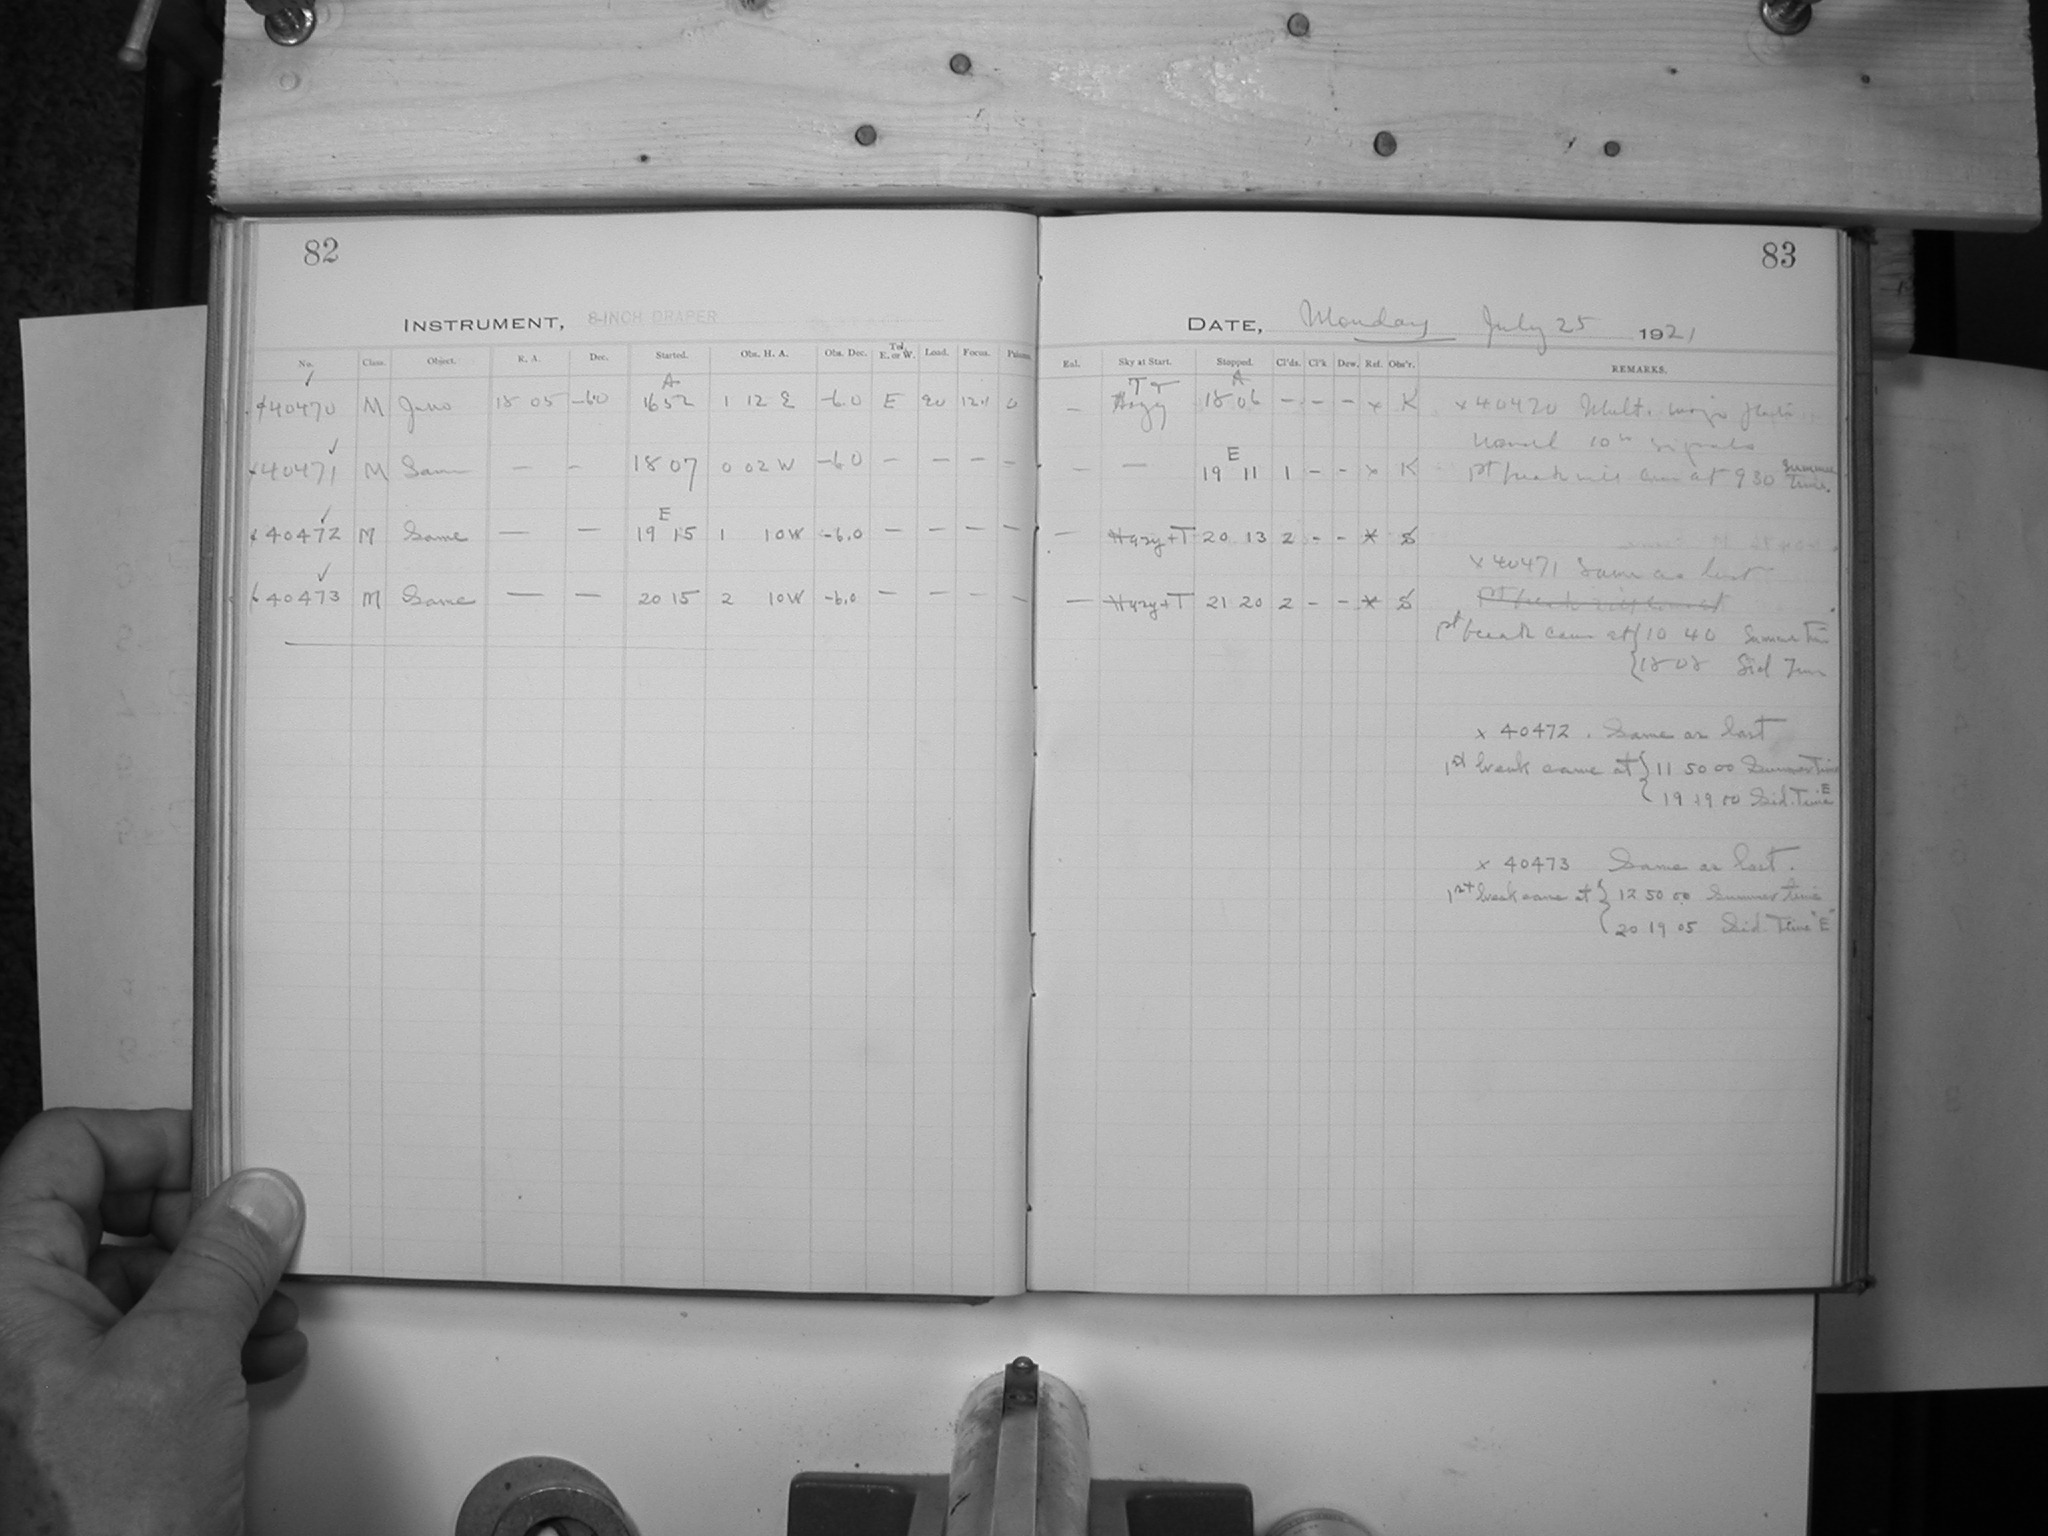 82
INSTRUMENT, 8-INCH DRAPER
No. Class. Object. R. A. Dec. Started. Obs. H. A. Obs. Dec. Tel. E. or W. Load. Focus.
A
40470 M Juno 18 05 -6.0 16 52 1 12 E -6.0 E 20 12.1 0
40471 M Same — — 18 07 0 02 W -6.0 — — — —
E
40472 M Same — — 19 15 1 10W -6.0 — — — —
40473 M Same — — 20 15 2 10W -6.0 — — — —
83
DATE, Monday July 25 1921
Sky at Start. Stopped. Cl'ds. Cl'k Dew. Ref. Obs'r. REMARKS.
T T A
— Hazy 18 06 — — — x K x 40470 Mult.
10m signals
E
— — 19 11 1 — — x K 1st break will come at 9 30 Summer Time.
— Hazy+T 20 13 2 - - * S
x 40471 Same as last
— Hazy+T 21 20 2 - - * S
1st break came at { 10 40 Summer Time
{ 18 08 Sid Time
x 40472 . Same as last
1st break came at { 11 50 00 Summer Time
{ 19 19 00 Sid. Time E
x 40473 Same as last.
1st break came at { 12 50 00 Summer time
{ 20 19 05 Sid. Time "E"